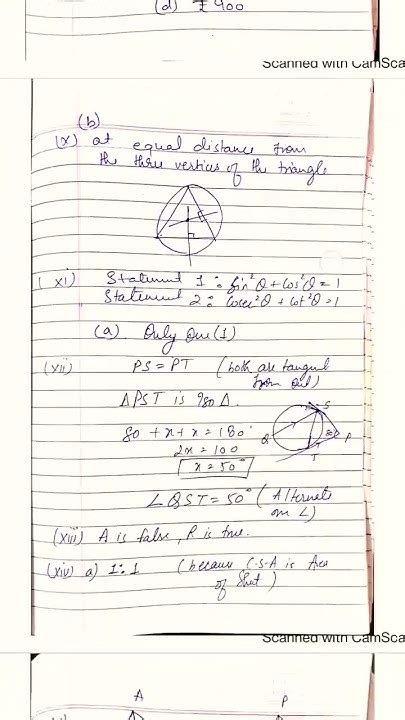 (d) ₹400
Scanned with CamSca
(b)
(x) at equal distance from
the three vertices of the triangle
(xi) Statement 1: Sin²θ + Cos²θ = 1
Statement 2: Cosec²θ + Cot²θ = 1
(a) Only One (1)
(xii) PS = PT (both are tangent
from
ΔPST is Δ.
80 + x + x = 180°
2x = 100
x = 50°
S
Q
P
T
∠QST = 50° (Alternate
∠)
(xiii) A is false, R is true.
(xiv) a) 1:1 (because C.S.A is Area
of Sheet)
Scanned with CamSca
A P